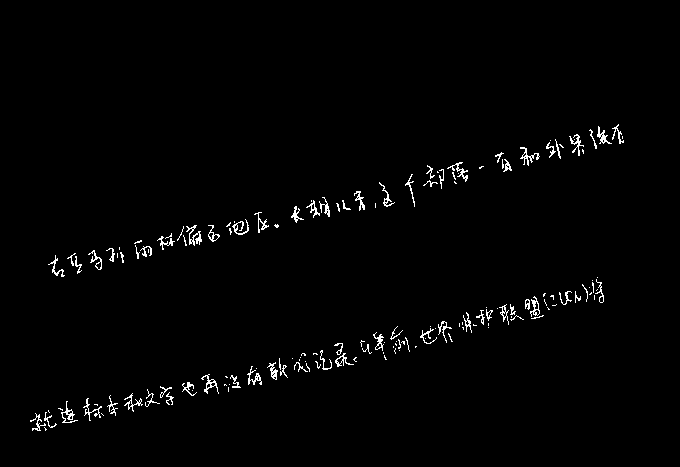 古亚马孙雨林偏远地区。长期以来,这个部落一直和外界没有
就连标本和文字也再没有歌以记录。4年前,世界保护联盟(IUCN)将